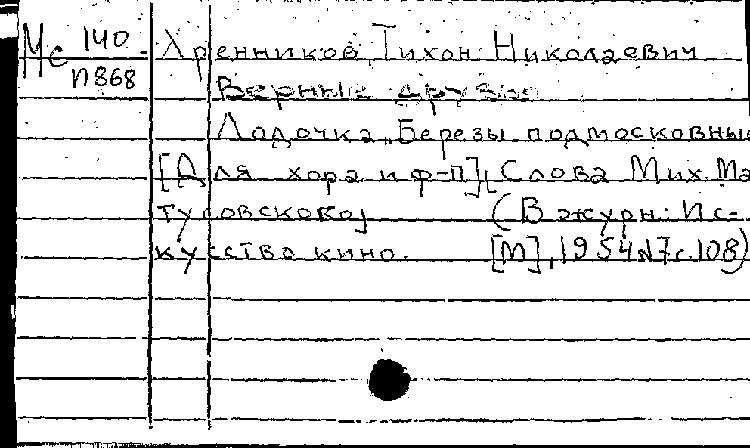 Мс 140 Хренников Тихон Николаевич
п868 Верные друзья
Лодочка. Березы подмосковные
[Для хора и ф-п]. Слова Мих. Ма
тусовского (В журн: Ис-
кусство кино. [М], 1954 №7 с.108)